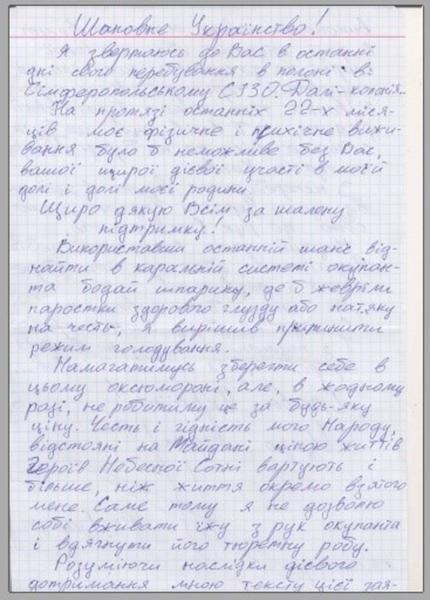 Шановне Українство!
Я звертаюсь до Вас в останні
дні свого перебування в полоні в
Сімферопольському СІЗО. Далі - колонія.
На протязі останніх 22-х міся-
ців моє фізичне і психічне вижи-
вання було б неможливе без Вас,
вашої щирої дієвої участі в моїй
долі і долі моєї родини.
Щиро дякую Всім за шалену
підтримку!
Використавши останній шанс від-
найти в каральній системі окупан-
та бодай шпарину, де б жевріли
паростки здорового глузду або натяку
на честь, я вирішив припинити
режим голодування.
Намагатимусь зберегти себе в
цьому оксюмороні, але, в жодному
разі, не робитиму це за будь-яку
ціну. Честь і гідність мого Народу,
відстояні на Майдані ціною життів
Героїв Небесної Сотні вартують і
більше, ніж життя окремо взятого
мене. Саме тому я не дозволю
собі вживати їжу з рук окупанта
і вдягнути його тюремну робу.
Розуміючи наслідки дієвого
дотримання мною тексту цієї зая-